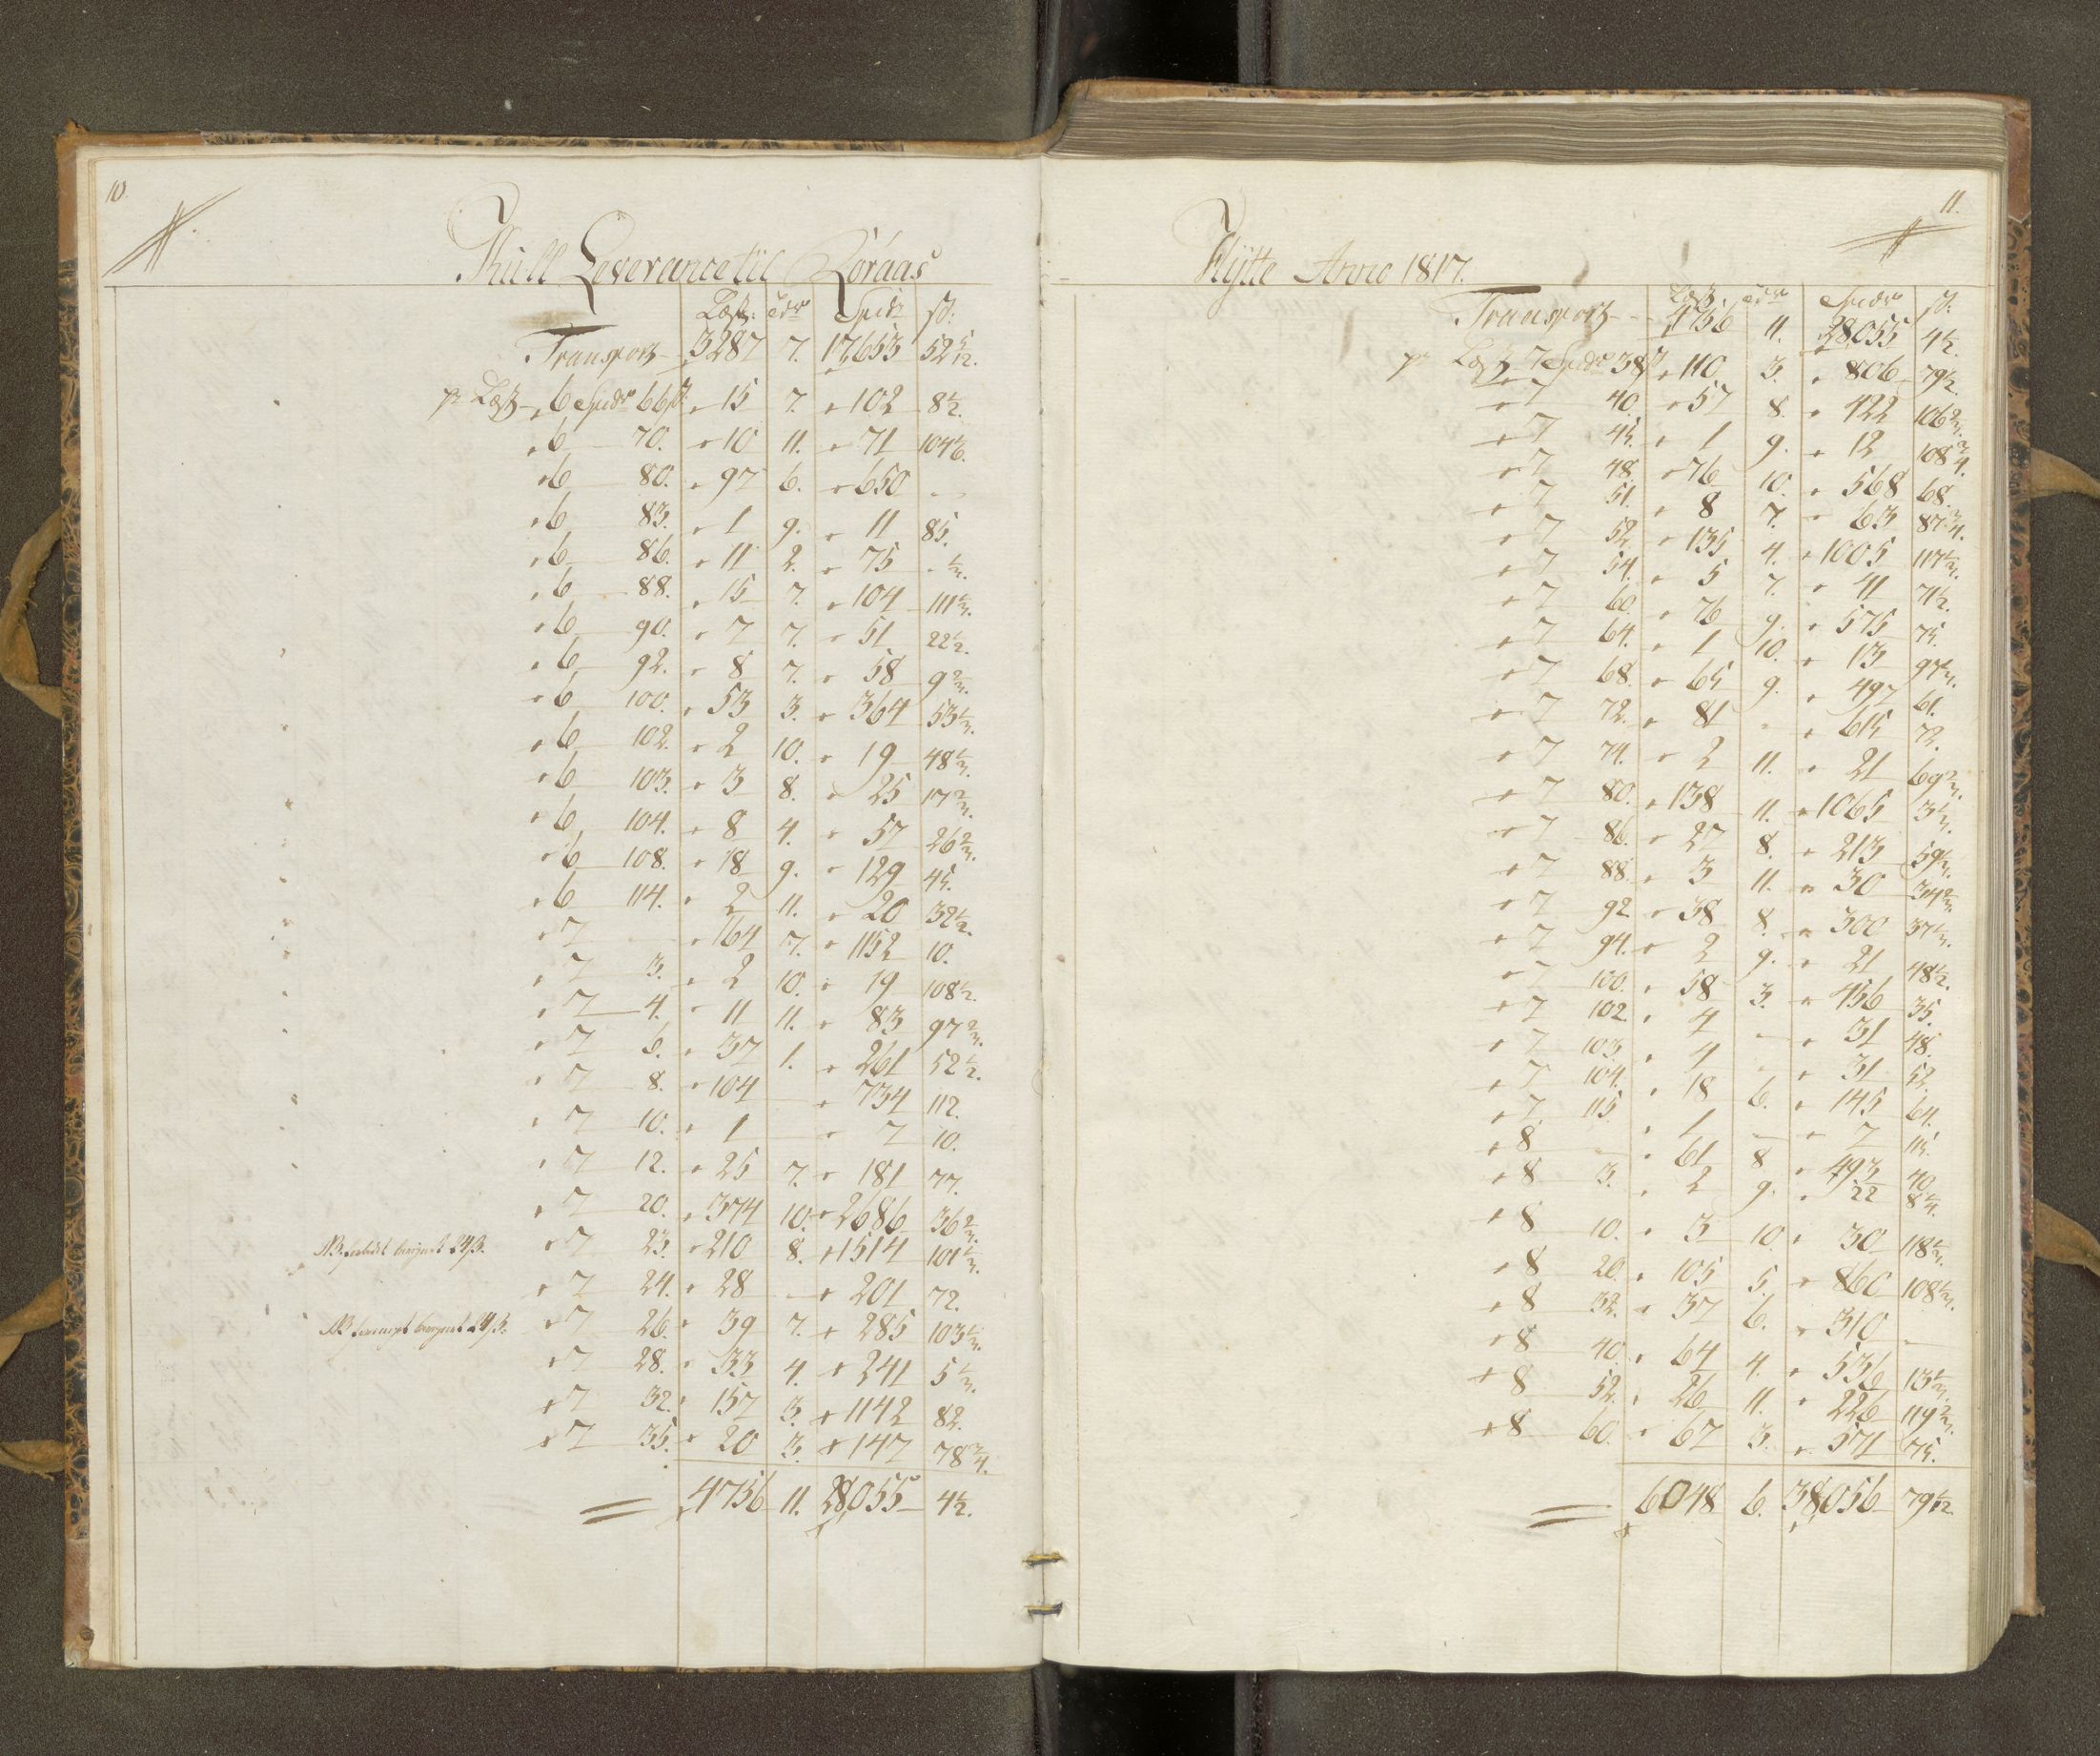 10.
Kull Leverance til Röraas
Læst. tdr Spidr s.
Transport 3287 7. 17,653 52 5/12.
pr Læst 6 Spidr 66 s. 15 7. 102 8 1/2.
6 70. 10 11. 71 104 1/6.
6 80. 97 6. 650 -
6 83. 1 9. 11 85.
6 86. 11 2. 75 - 1/3.
6 88. 15 7. 104 111 1/3.
6 90. 7 7. 51 22 1/2.
6 92. 8 7. 58 9 2/3.
6 100. 53 3. 364 53 1/3.
6 102. 2 10. 19 48 1/3.
6 103. 3 8. 25 17 2/3.
6 104. 8 4. 57 26 2/3.
6 108. 18 9. 129 45.
6 114. 2 11. 20 32 1/2.
7 - 164 7. 1152 10.
7 3. 2 10. 19 108 1/2.
7 4. 11 11. 83 97 2/3.
7 6. 37 1. 261 52 1/2.
7 8. 104 - 734 112.
7 10. 1 - 7 10.
7 12. 25 7. 181 77.
7 20. 374 10. 2686 36 2/3.
7 23. 210 8. 1514 101 1/3.
7 24. 28 - 201 72.
7 26. 39 7. 285 103 1/3.
7 28. 33 4. 241 5 1/3.
7 32. 157 3. 1142 82.
7 35. 20 3. 147 78 3/4.
4756 11. 28,055 4 1/2.
11.
Hÿtte Anno 1817.
Læst. tdr Spidr s.
Transport 4756 11. 28,055 4 1/2.
pr Læst 7 Spidr 38 s. 110 3. 806 79 1/2.
7 40. 57 8. 422 106 2/3.
7 45. 1 9. 12 108 3/4.
7 48. 76 10. 568 68.
7 51. 8 7. 63 87 3/4.
7 52. 135 4. 1005 117 1/3.
7 54. 5 7. 41 71 1/2.
7 60. 76 9. 575 75.
7 64. 1 10. 13 97 1/3.
7 68. 65 9. 497 61.
7 72. 81 - 615 72.
7 74. 2 11. 21 69 2/3.
7 80. 138 11. 1065 3 1/3.
7 86. 27 8. 213 59 1/3.
7 88. 3 11. 30 34 2/3.
7 92. 38 8. 300 37 1/3.
7 94. 2 9. 21 48 1/2.
7 100. 58 3. 456 35.
7 102. 4 - 31 48.
7 103. 4 - 31 52.
7 104. 18 6. 145 64.
7 115. 1 - 7 115.
8 - 61 8 493 40.
8 3. 2 9. 22 8 1/4.
8 10. 3 10. 30 118 1/3.
8 20. 105 5. 860 108 1/3.
8 32. 37 6. 310 -
8 40. 64 4. 536 13 1/3.
8 52. 26 11. 226 119 2/3.
8 60. 67 3. 571 75.
6048 6. 38,056 79 1/12.